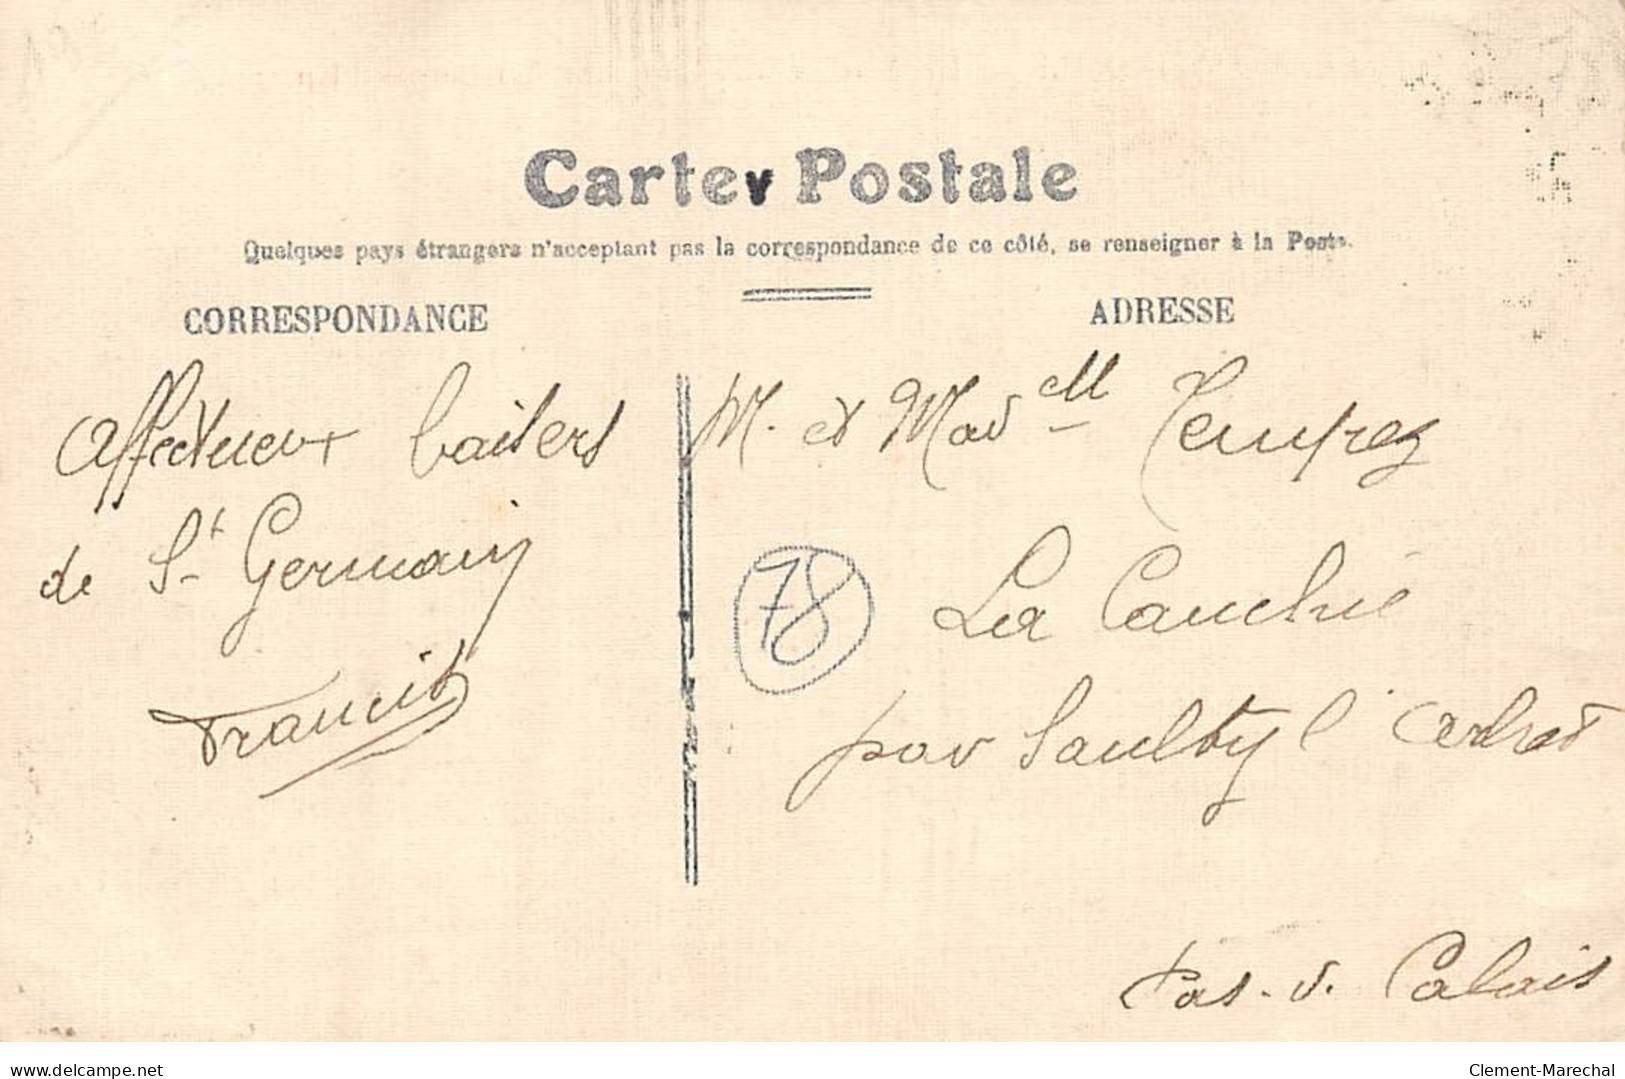 Carte Postale
Quelques pays étrangers n'acceptant pas la correspondance de ce côté, se renseigner à la Poste.
CORRESPONDANCE
ADRESSE
Affectueux baisers
de St Germain
Francis
M. et Mad
78
La Cauchie
par Saulty l'
Pas. d. Calais
delcampe.net
Clement-Marechal